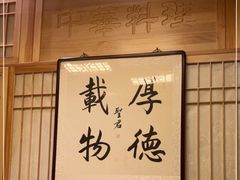 中華料理
厚德
載物
聖君